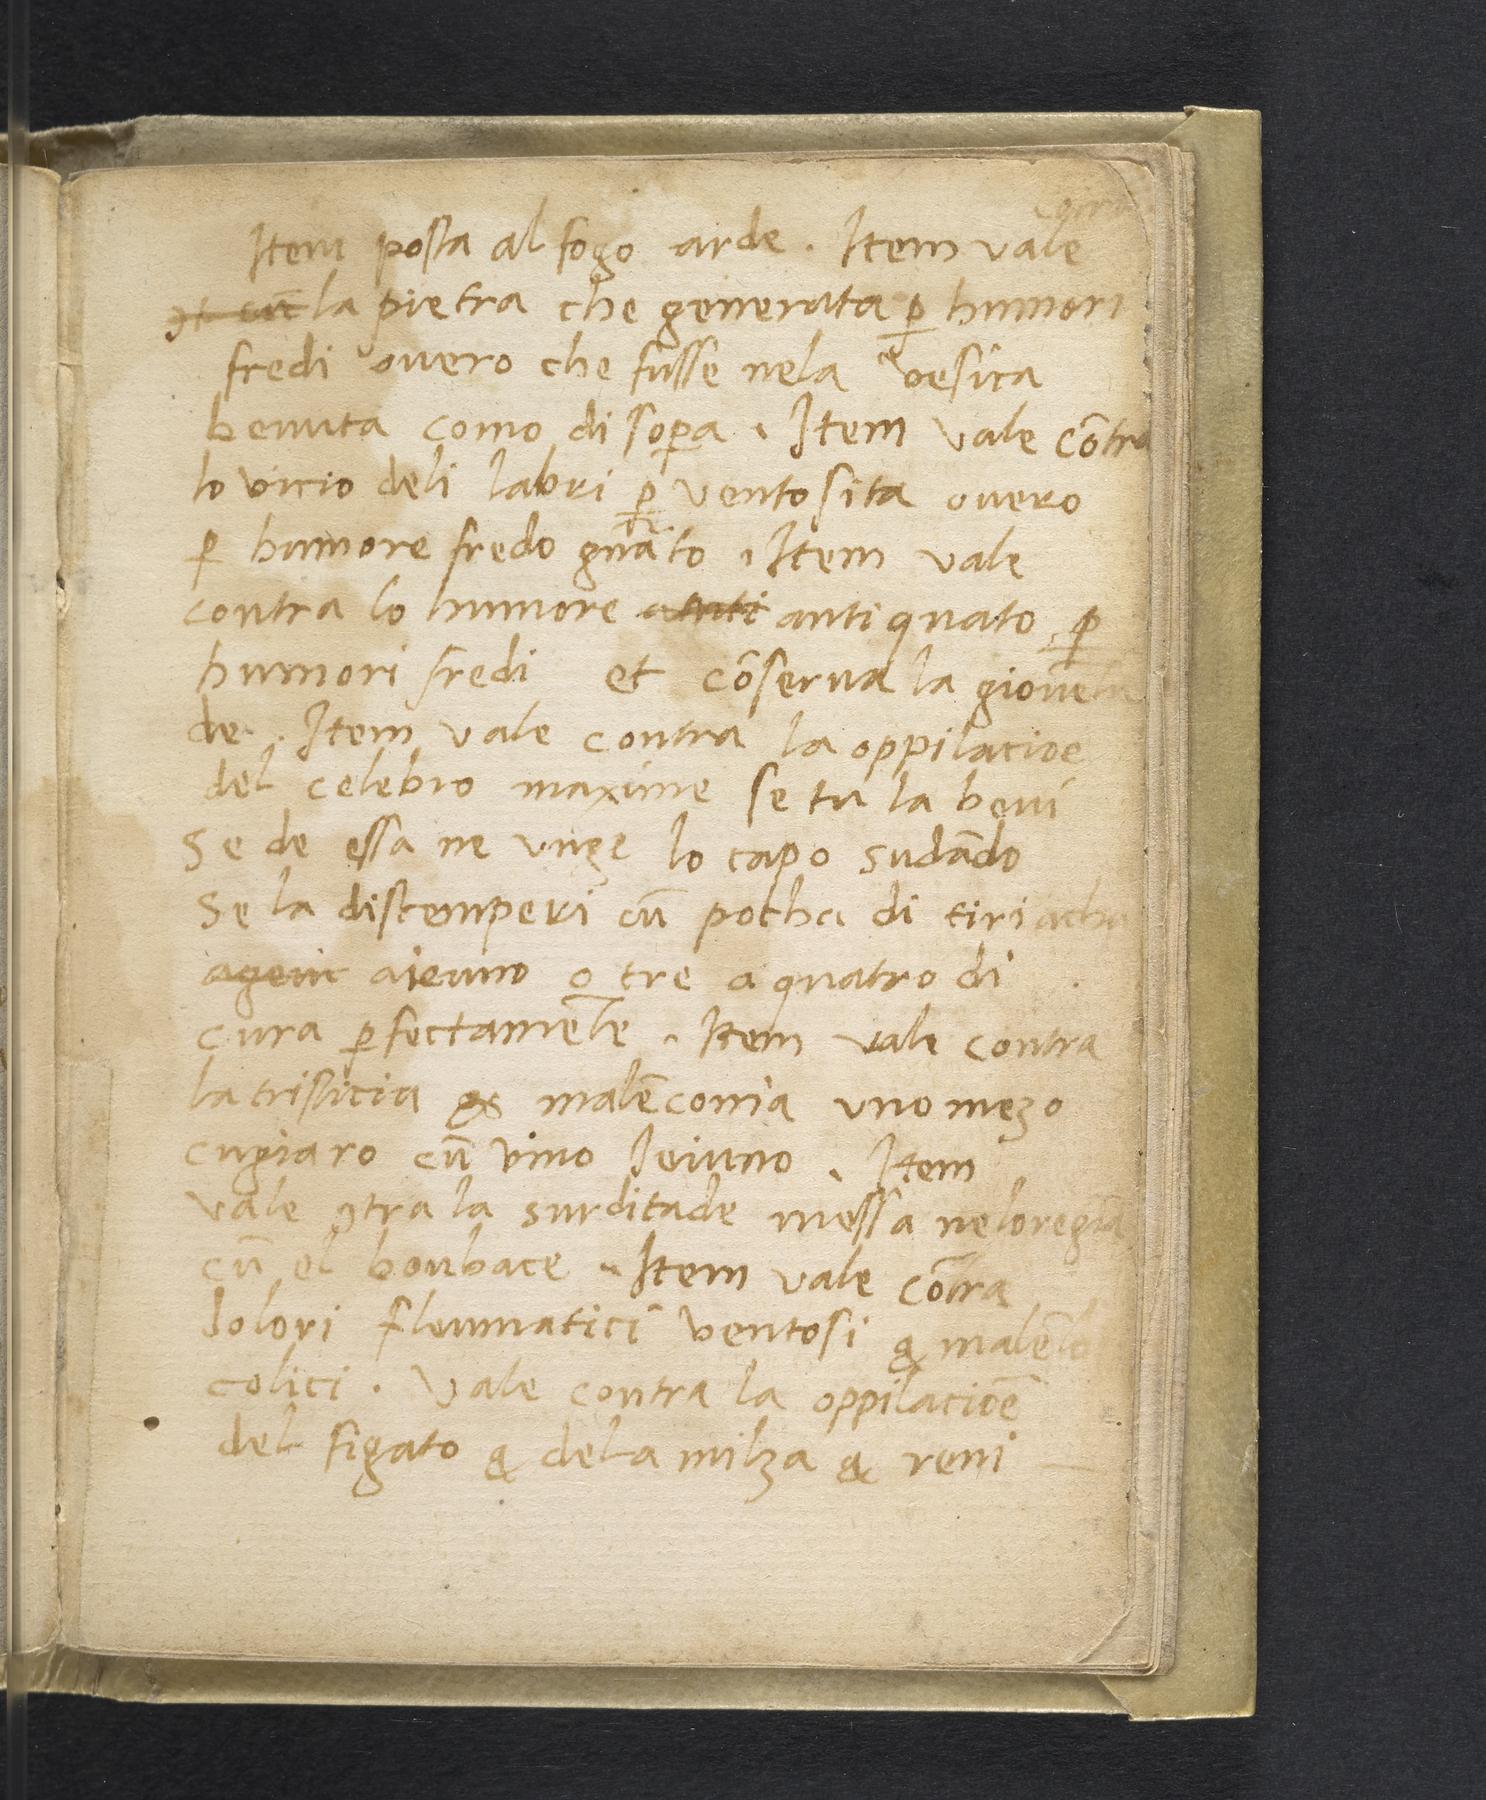 contra
Item posta al fogo arde . Item vale
la pietra che generata ꝑ humori
fredi ouero che fusse nela vesica
beuuta como di soꝑa . Item vale cōtra
lo vicio deli labri ꝑ ventosita ouero
ꝑ humore fredo gnāto . Item vale
contra lo humore anti antiquato ꝑ
humori fredi et cōserua la giouētu
de . Item vale contra la oppilacioe
del celebro maxime se tu la beui
Se de essa ne unge lo capo sudādo
Se la distemperi cū pocha di tiriacha
aieiuno o tre o quatro di
cura ꝑfectamēte . Item vale contra
la tristicia & malēconia uno mezo
cugiaro cū vino Ieiuno . Item
vale ꝯtra la surditade messa neloregia
cū el bonbace . Item vale cōtra
dolori fleumatici ventosi & malēco
colici . Vale contra la oppilacioē
del figato & dela milza & reni